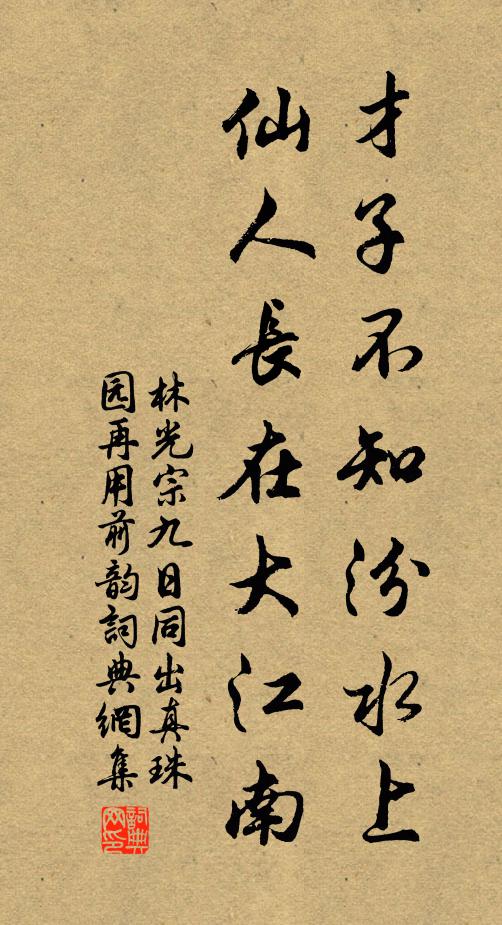 才子不知汾水上
仙人長在大江南
林光宗九日同出真珠
园再用前韵詞典網集
詞典网印